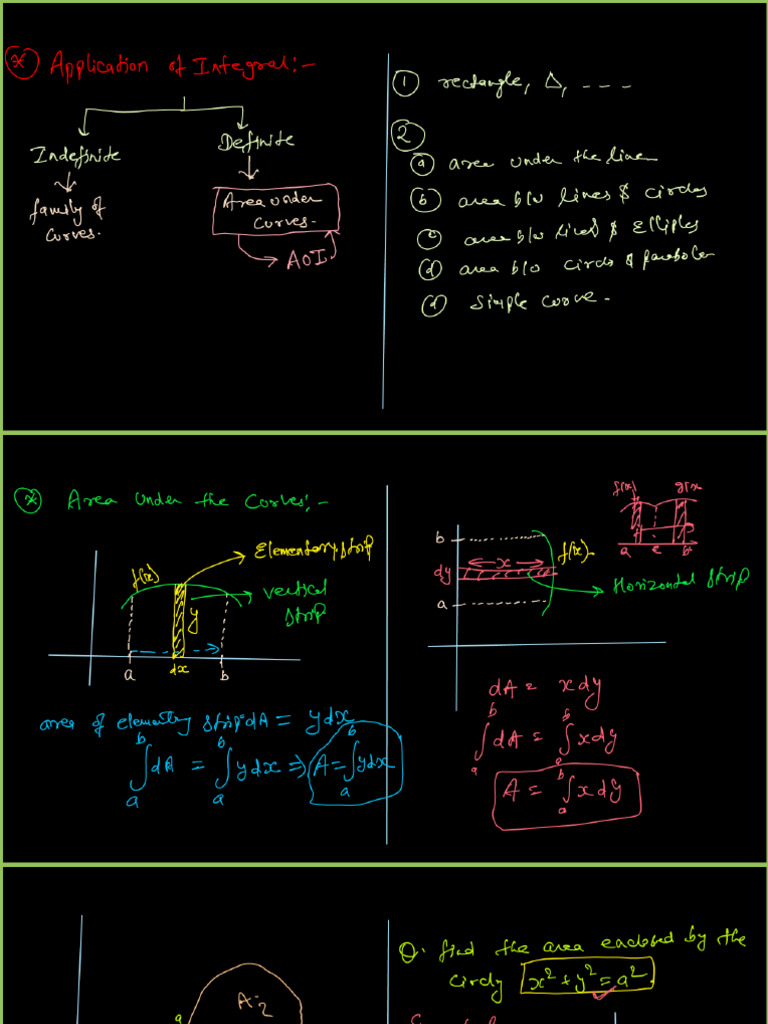 * Application of Integral:-
Indefinite
Definite
family of
curves.
Area under
Curves.
AOI
① rectangle, Δ, ---
②
ⓐ area under the line
ⓑ area b/w lines & circles
ⓒ area b/w lines & Elliples
ⓓ area b/w circls & parabola
ⓓ Simple curve.
* Area under the Curves:-
Elementary strip
f(x)
vertical
strip
y
a
dx
b
area of elementry strip dA = ydx
∫_a^b dA = ∫_a^b ydx ⇒ A = ∫_a^b ydx
f(x)
g(x
a
c
b
b
x
f(x)
dy
a
Horizontal strip
dA = xdy
∫_a^b dA = ∫_a^b xdy
A = ∫_a^b x dy
A-2
a
Q. find the area enclosed by the
circly x² + y² = a²